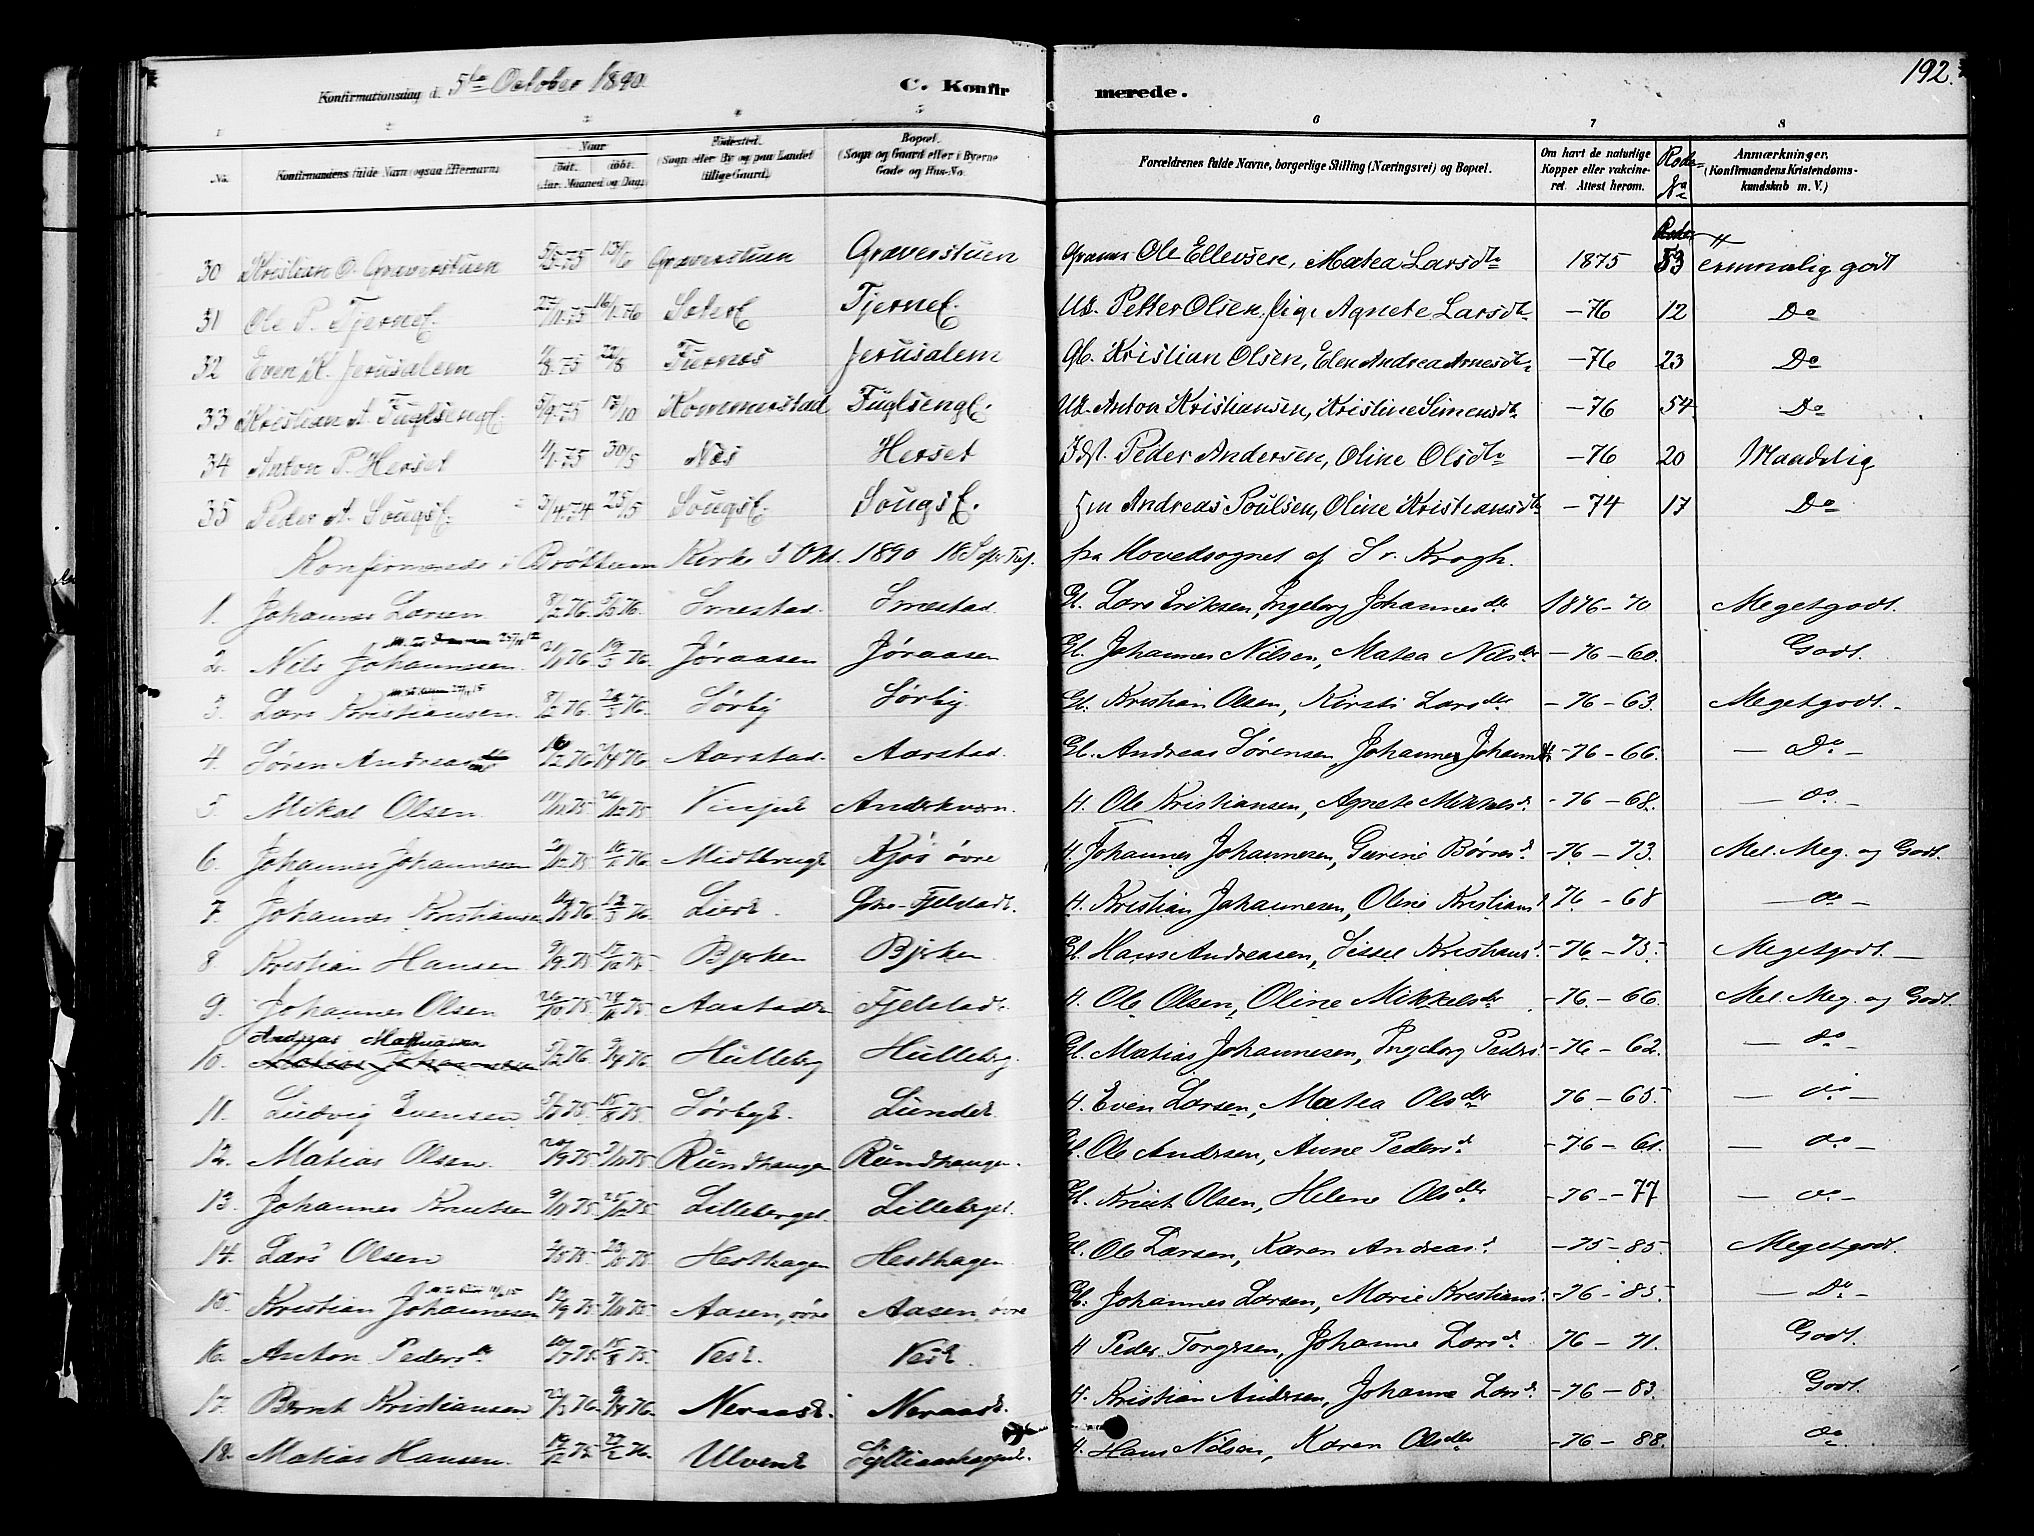 192.
Konfirmationsdag d. 5te October 1890. C. Konfirmerede.
1 2 3 4 5 6 7 8
No. Konfirmandens fulde Navn (ogsaa Efternavn) Naar født. døbt. (Aar, Maaned og Dag) Fødested. (Sogn eller By og paa Landet tillige Gaard) Bopæl. (Sogn og Gaard eller i Byerne Gade og Hus-No. Forældrenes fulde Navne, borgerlige Stilling (Næringsvei) og Bopæl. Om havt de naturlige Kopper eller vakcineret. Attest herom. Rode No Anmærkninger. (Konfirmandens Kristendomskundskab m. V.)
30 Kristian O. Graverstuen 5/5 75 13/6 Graverstuen Graverstuen Graver Ole Ellevsen, Matea Larsdtr 1875 53 temmelig godt
31 Ole P. Tjerne. 16/1 76 Tjerne. Petter Olsen, Pige Agnete Larsdtr -76 12 Do
32 Even K. Jerusalem 22/8 Furnes Jerusalem Kristian Olsen, Elen Andrea Arnesdtr -76 23 Do
33 Kristian A. Fuglseng. 5/9 75 13/10 Kommerstad Fuglseng. Anton Kristiansen, Kristine Simensdtr -76 54 Do
34 Anton P. Herset 4/1 75 30/5 Nes Herset Peder Andersen, Oline Olsdtr -76 20 Maadelig
35 Peder A. 3/4 74 25/5 Andreas Poulsen, Oline Kristiansdtr -74 17 Do
Konfirmerede i Brøttum Kirke 5 Okt. 1890 fra Hovedsognet af S. v. Krogh.
1. Johannes Larsen 8/2 76 5/3 76. Smestad. Smestad. Gl. Lars Eriksen, Ingeborg Johannesdtr 1876-70 Megetgodt.
2. Nils Johannesen. 76 19/3 76. Jøraasen Jøraasen Gl. Johannes Nilsen, Matea Nilsdtr -76-60. Godt.
3. Lars Kristiansen. 8/2 76. 26/3 76. Sørby Sørby. Gl. Kristian Olsen, Kirsti Larsdtr -76-63. Megetgodt.
4. Søren Andreas 76 76. Aarstad. Aarstad. Gl. Andreas Sørensen, -76-66. -Do-
5. Mikal Olsen. 75. 26/12 75. Anderkværn. H. Ole Kristiansen, Agnete Mikkelsd. -76-68. -do-
6. Johannes Johannesen 75. 16/1 76. Midtbrugt Kjøs øvre H. Johannes Johannesen, Gurine Børresd. -76-73. Mel. Meg. og Godt.
7. Johannes Kristiansen 76. 12/3 76. Liert. Fjelstadt. H. Kristian Johannesen, Oline Kristiansd 76-68 -do-
8 Kristian Hansen 9/9 75. 17/10 75. Bjerken Bjerken. Gl. Hans Andreasen, Sissel Kristiansd -76-75- Megetgodt.
9. Johannes Olsen 26/10 75. 75. Aastadt Fjelstadt. H. Ole Olsen, Oline Mikkelsdtr -76-66. Mel. Meg. og Godt.
Andreas Mathiasen
10. Matias Johannesen 5/2 76. 9/4 76. Hulleby Hulleby. Gl. Matias Johannesen, Ingeborg Peders. -76-62. -do-
11. Ludvig Evensen 75. 15/8 75. Sørbyt. Lundet. H. Even Larsen, Matea Olsdtr 76-65- -do-
12. Matias Olsen. 20/9 75. 75. Rundhaugen Rundhaugen. Gl. Ole Andersen, Anne Pedersd. -76-61. -do-
13. Johannes Knutsen 9/11 75. 25/12 75. Lilleberget. Lilleberget. Gl. Knut Olsen, Helene Olsdtr -76--77 -do-
14. Lars Olsen 75. 75. Hesthagen Hesthagen Gl. Ole Larsen, Karen Andreas. -75-85. Megetgodt.
15. Kristian Johannesen 12/9 75. 7/11 75. Aasen, øvre Aasen, øvre Gl. Johannes Larsen, Marie Kristians. -76-85. -Do-
16. Anton Peders. 10/7 75. 15/8 75. Vest. Vest. H Peder Torgersen, Johanne Larsd. 76-71. Godt.
17. Bernt Kristiansen 76. 9/4 76. Neraast. Neraast. H. Kristian Andersen, Johanne Larsd. -76-83. Godt.
18. Matias Hansen. 19/12 75. 27/2 76. Ulvent H. Hans Nilsen, Karen Olsdtr -76-88. do